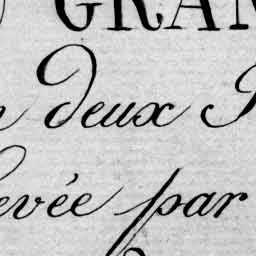 GRAN
deux
evée par